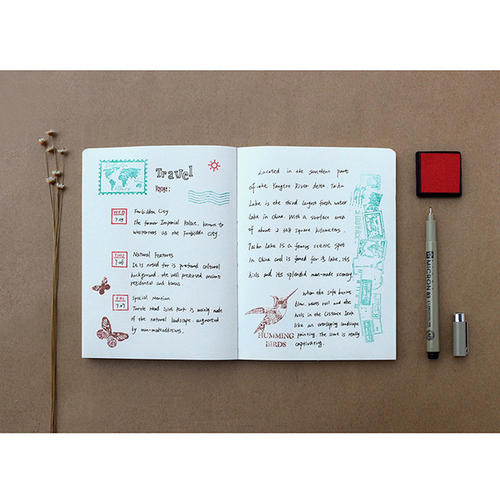 Travel
Forbidden City
The former Imperial Palace, known to
westerners as the Forbidden City.
Natural Features
It is noted for is profound cultural
background, the well preserved ancient
residential and
Special mention
Turtle Head Isle Park is mainly made
of the natural landscape, augmented
by
Located in the southern part
of the Yangtze River delta Taihu
Lake is the third largest fresh water
lake in china. With a surface area
of about 2 full square kilometers.
Taihu Lake is a famous scenic spot
in China and is famed for lake, its
hills and its splendid man-made scenery.
When the soft breeze
blows, and the
hills in the distance look
like an overlapping landscape
painting. The scene is really
captivating.
HUMMING
BIRDS
MICRON